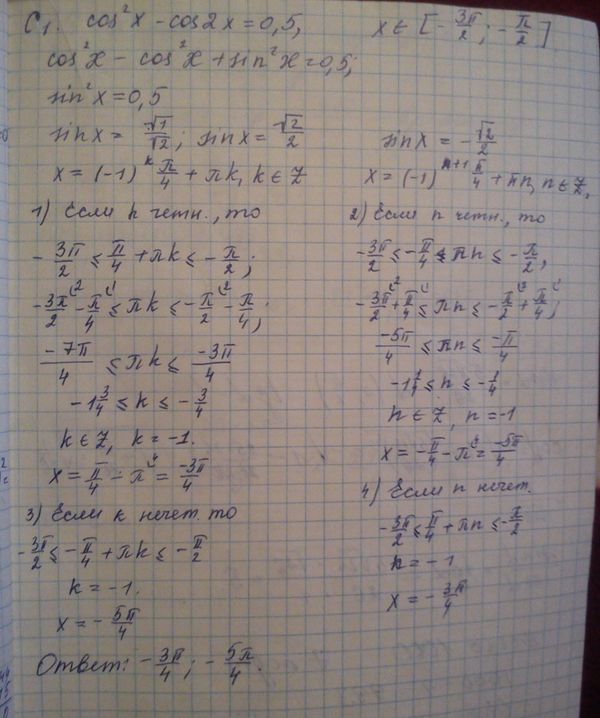 С1. cos²x - cos2x = 0,5, x ∈ [-3π/2; -π/2]
cos²x - cos²x + sin²x = 0,5;
sin²x = 0,5
sinx = √1/√2; sinx = √2/2
x = (-1)^k π/4 + πk, k ∈ Z
1) Если k четн., то
-3π/2 ≤ π/4 + πk ≤ -π/2;
-3π/2 - π/4 ≤ πk ≤ -π/2 - π/4;
-7π/4 ≤ πk ≤ -3π/4
-1 3/4 ≤ k ≤ -3/4
k ∈ Z, k = -1.
x = π/4 - π = -3π/4
3) Если k нечет. то
-3π/2 ≤ -π/4 + πk ≤ -π/2
k = -1.
x = -5π/4
sinx = -√2/2
x = (-1)^(n+1) π/4 + πn, n ∈ Z,
2) Если n четн., то
-3π/2 ≤ -π/4 ≤ πn ≤ -π/2,
-3π/2 + π/4 ≤ πn ≤ -π/2 + π/4;
-5π/4 ≤ πn ≤ -π/4
-1 1/4 ≤ n ≤ -1/4
n ∈ Z, n = -1
x = -π/4 - π = -5π/4
4) Если n нечет.
-3π/2 ≤ π/4 + πn ≤ -π/2
n = -1
x = -3π/4
Ответ: -3π/4; -5π/4.